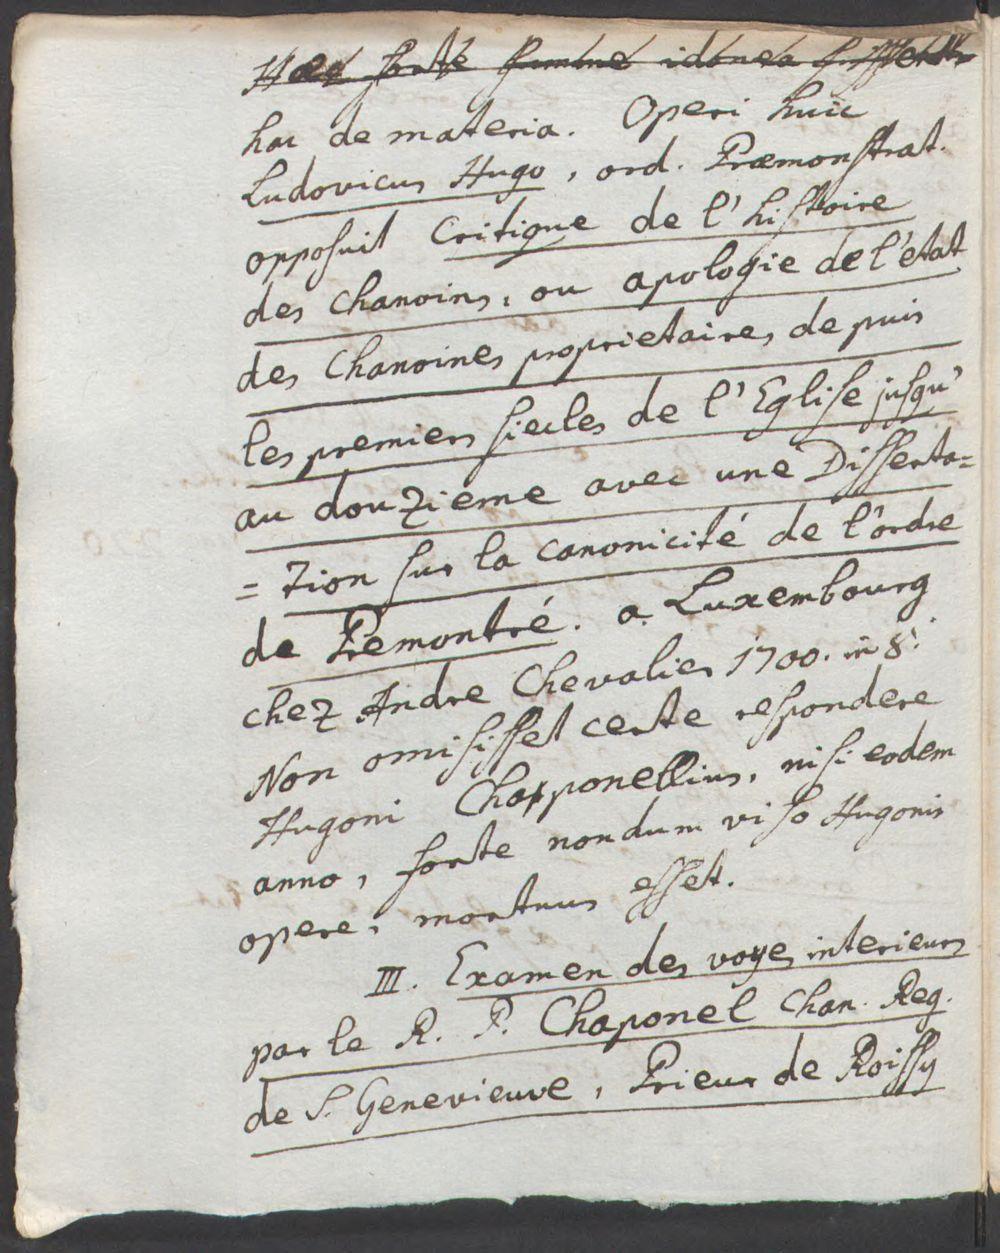 Haec forte
hac de materia. Operi huic
Ludovicus Hugo, ord. Præmonstrat.
opposuit Critique de l'histoire
des chanoins, ou apologie de l'état
des Chanoines proprietaires de puis
les premiers siecles de l'Eglise jusqu'
au douzieme avec une Disserta=
=zion sur la canonicité de l'ordre
de Premontré. a Luxembourg
chez Andre Chevalier 1700. in 8.
Non omisisset certe respondere
Hugoni Chapponellius, nisi eodem
anno, forte nondum viso Hugonis
opere, mortuus esset.
III. Examen des voyes interieurs
par le R. P. Chaponel Chan. Reg.
de S. Genevieuve, Prieur de Roissy